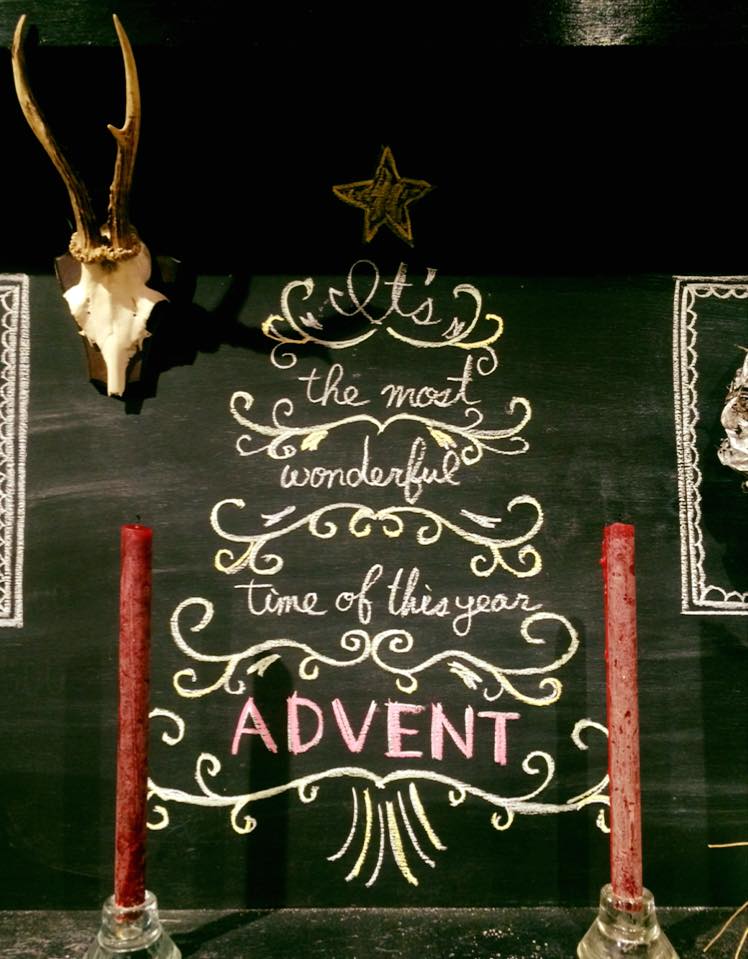 It's
the most
wonderful
time of this year
ADVENT